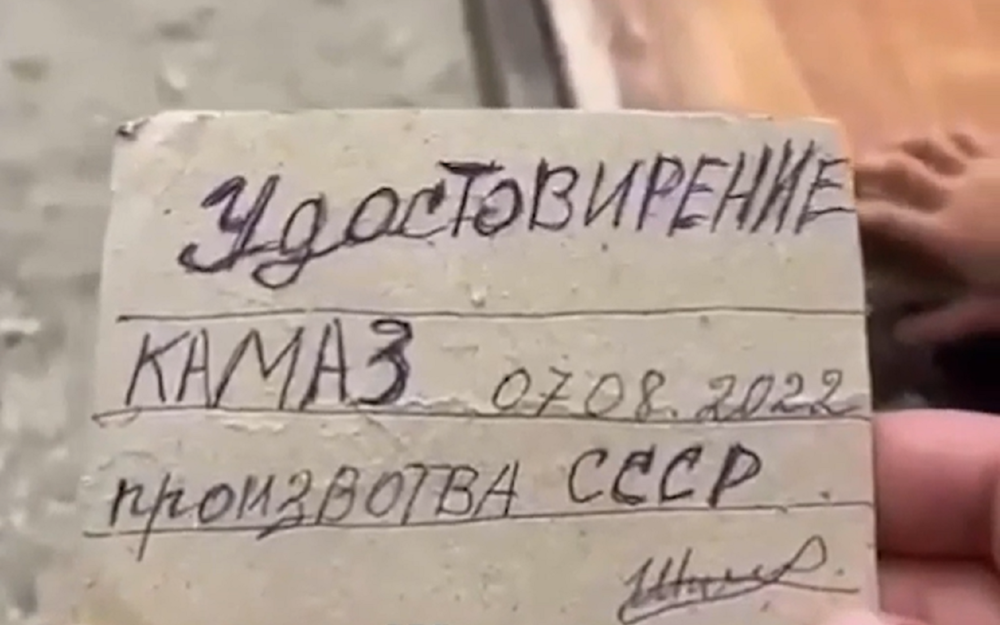 УдостОВИРЕНИЕ
КАМАЗ 07 08. 2022
произВОТВА СССР.